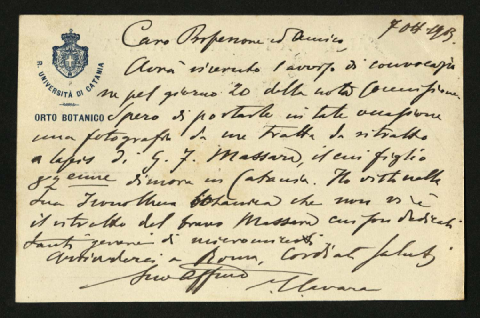 R. UNIVERSITÀ DI CATANIA
ORTO BOTANICO
7 Ott. 1903
Caro Professore ed Amico,
Avrà ricevuto l'avviso di convocazio
ne pel giorno 20 della nota Commissione.
Spero di portarle in tale occasione
una fotografia da me tratta da ritratto
a lapis di G. F. Massara, il cui figlio
dimora in Catania. Ho visto nella
Sua Iconoteca botanica che non vi è
il ritratto del bravo Massara cui fu dedicato
generi di micromiceti
Arrivederci a Roma, Cordiali saluti
Suo affmo
Cavara